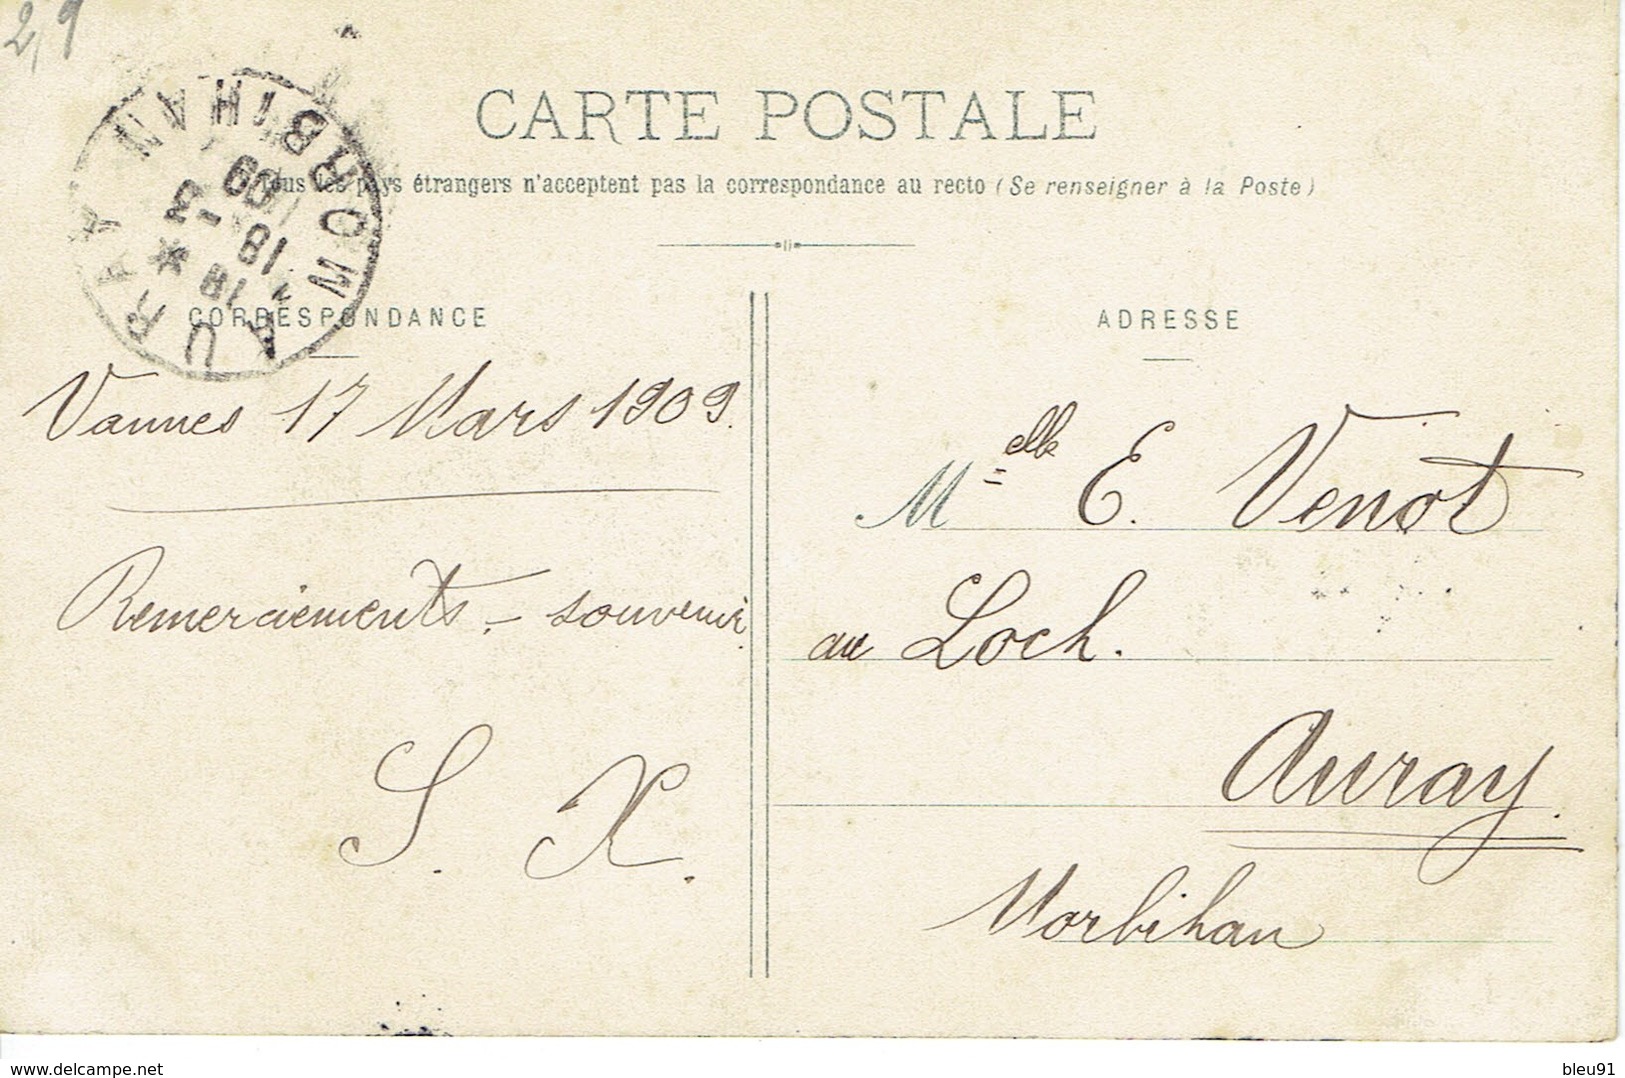 2,9
CARTE POSTALE
Tous les pays étrangers n'acceptent pas la correspondance au recto (Se renseigner à la Poste)
AURAY MORBIHAN
18
18 - 3
09
CORRESPONDANCE
Vannes 17 Mars 1909.
Remerciements - souvenir.
S. X.
ADRESSE
Melle E. Venot
au Loch.
Auray.
Morbihan
www.delcampe.net
bleu91